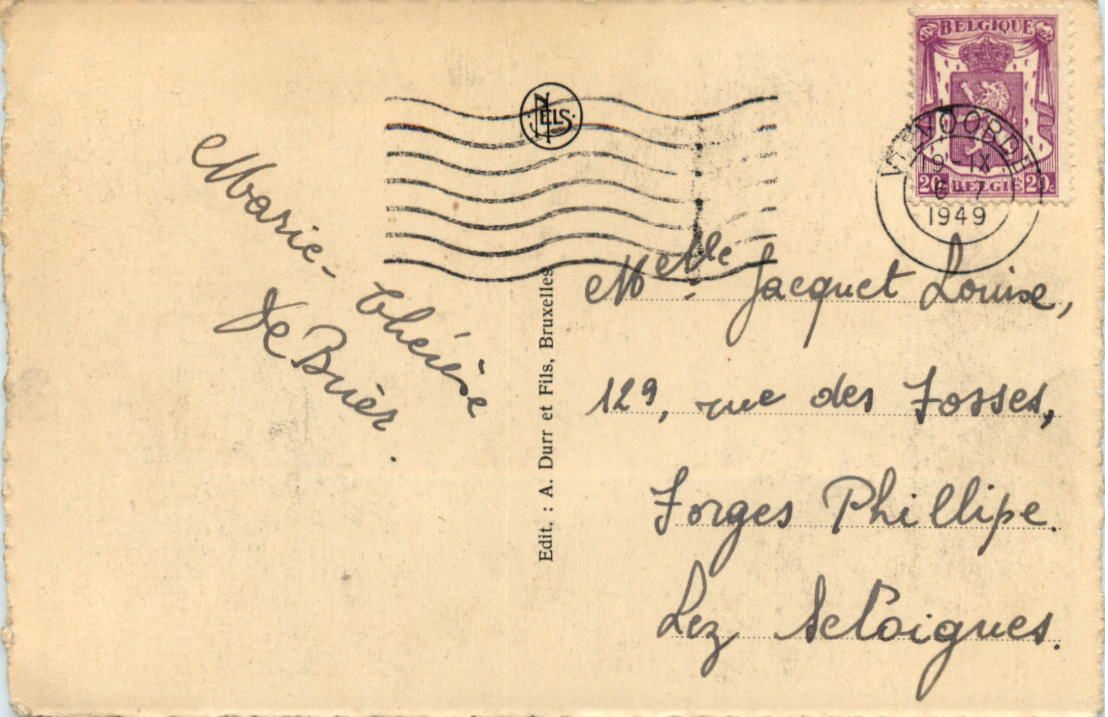 BELGIQUE
20c BELGIË 20c
VILVOORDE
IX
1949
NELS
Marie-Thérèse
De Buèr.
Edit. : A. Durr et Fils, Bruxelles
Melle Jacquet Louise,
129, rue des Fosses,
Forges Phillipe.
Lez Seloignes.